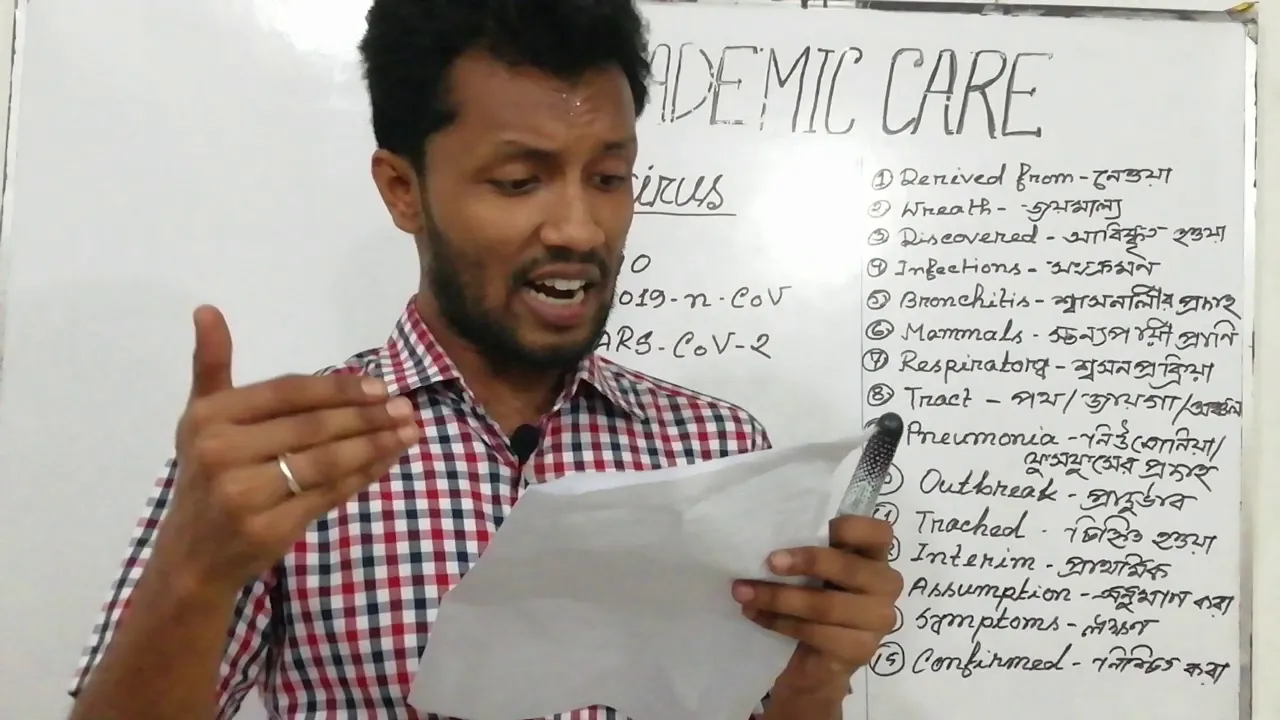 ADEMIC CARE
irus
0
019-n-CoV
ARS-CoV-2
① Derived from - নেওয়া
② Wreath - জয়মাল্য
③ Discovered - আবিষ্কৃত হওয়া
④ Infections - সংক্রমন
⑤ Bronchitis - শ্বাসনালীর প্রদাহ
⑥ Mammals - স্তন্যপায়ী প্রাণি
⑦ Respiratory - শ্বসনপ্রক্রিয়া
⑧ Tract - পথ/জায়গা/অঞ্চল
Pneumonia - নিউমোনিয়া/
ফুসফুসের প্রদাহ
Outbreak - প্রাদুর্ভাব
Tracked - চিহ্নিত হওয়া
Interim - প্রাথমিক
Assumption - অনুমান করা
Symptoms - লক্ষণ
⑮ Confirmed - নিশ্চিত করা